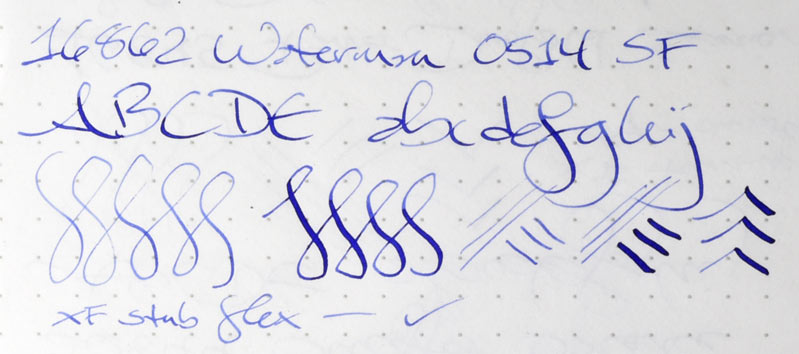 16862 Waterman 0514 SF
ABCDE abcdefghij
xF stub flex — ✓